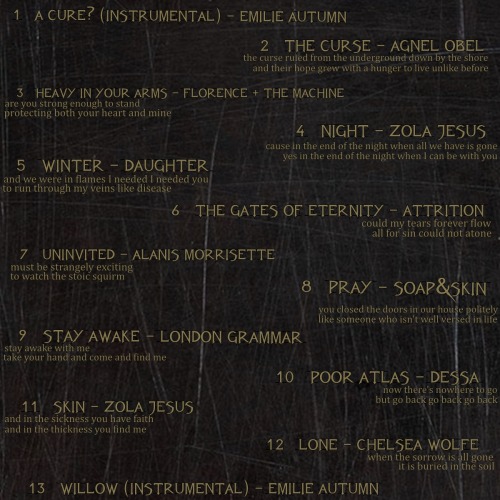 1 A CURE? (INSTRUMENTAL) – EMILIE AUTUMN
2 THE CURSE – AGNEL OBEL
the curse ruled from the underground down by the shore
and their hope grew with a hunger to live unlike before
3 HEAVY IN YOUR ARMS – FLORENCE + THE MACHINE
are you strong enough to stand
protecting both your heart and mine
4 NIGHT – ZOLA JESUS
cause in the end of the night when all we have is gone
yes in the end of the night when I can be with you
5 WINTER – DAUGHTER
and we were in flames I needed I needed you
to run through my veins like disease
6 THE GATES OF ETERNITY – ATTRITION
could my tears forever flow
all for sin could not atone
7 UNINVITED – ALANIS MORRISETTE
must be strangely exciting
to watch the stoic squirm
8 PRAY – SOAP&SKIN
you closed the doors in our house politely
like someone who isn't well versed in life
9 STAY AWAKE – LONDON GRAMMAR
stay awake with me
take your hand and come and find me
10 POOR ATLAS – DESSA
now there's nowhere to go
but go back go back go back
11 SKIN – ZOLA JESUS
and in the sickness you have faith
and in the thickness you find me
12 LONE – CHELSEA WOLFE
when the sorrow is all gone
it is buried in the soil
13 WILLOW (INSTRUMENTAL) – EMILIE AUTUMN